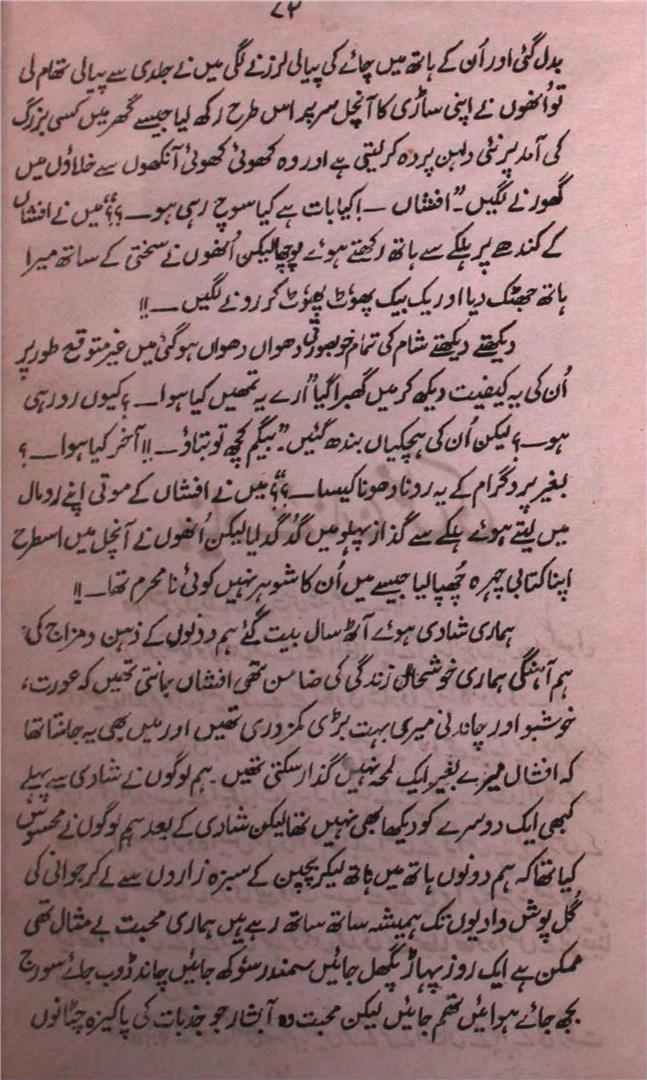 ۷۲
بدل گئی اور اُن کے ہاتھ میں چائے کی پیالی لرزنے لگی میں نے جلدی سے پیالی تھام لی
تو اُنھوں نے اپنی ساڑی کا آنچل سر پر اس طرح رکھ لیا جیسے گھر میں کسی بزرگ
کی آمد پر نئی دلہن پردہ کر لیتی ہے اور وہ کھوئی کھوئی آنکھوں سے خلاؤں میں
گھورنے لگیں۔ "افشاں ـ! کیا بات ہے کیا سوچ رہی ہو ـ؟؟" میں نے افشاں
کے کندھے پر ہلکے سے ہاتھ رکھتے ہوئے پوچھا لیکن اُنھوں نے سختی کے ساتھ میرا
ہاتھ جھٹک دیا اور یک بیک پھوٹ پھوٹ کر رونے لگیں ـ!!
دیکھتے دیکھتے شام کی تمام خوبصورتی دھواں دھواں ہو گئی میں غیر متوقع طور پر
اُن کی یہ کیفیت دیکھ کر میں گھبرا گیا "ارے یہ تمھیں کیا ہوا ـ؟ کیوں رو رہی
ہو ـ؟ لیکن اُن کی ہچکیاں بندھ گئیں۔ "بیگم کچھ تو بتاؤ ـ!! آخر کیا ہوا ـ؟
بغیر پروگرام کے یہ رونا دھونا کیسا ـ؟؟" میں نے افشاں کے موتی اپنے رومال
میں لیتے ہوئے ہلکے سے گداز پہلو میں گدگدایا لیکن اُنھوں نے آنچل میں اسطرح
اپنا کتابی چہرہ چُھپا لیا جیسے میں اُن کا شوہر نہیں کوئی نامحرم تھا ـ!!
ہماری شادی ہوئے آٹھ سال بیت گئے ہم دونوں کے ذہن و مزاج کی
ہم آہنگی ہماری خوشحال زندگی کی ضامن تھی افشاں جانتی تھیں کہ عورت،
خوشبو اور چاندنی میری بہت بڑی کمزوری تھیں اور میں بھی یہ جانتا تھا
کہ افشاں میرے بغیر ایک لمحہ نہیں گذار سکتی تھیں۔ ہم لوگوں نے شادی سے پہلے
کبھی ایک دوسرے کو دیکھا بھی نہیں تھا لیکن شادی کے بعد ہم لوگوں نے محسوس
کیا تھا کہ ہم دونوں ہاتھ میں ہاتھ لیکر بچپن کے سبزہ زاروں سے لے کر جوانی کی
گُل پوش وادیوں تک ہمیشہ ساتھ ساتھ رہے ہیں ہماری محبت بے مثال تھی
ممکن ہے ایک روز پہاڑ پگھل جائیں سمندر سوکھ جائیں چاند ڈوب جائے سورج
بجھ جائے ہوائیں تھم جائیں لیکن محبت وہ آبشار جو جذبات کی پاکیزہ چٹانوں